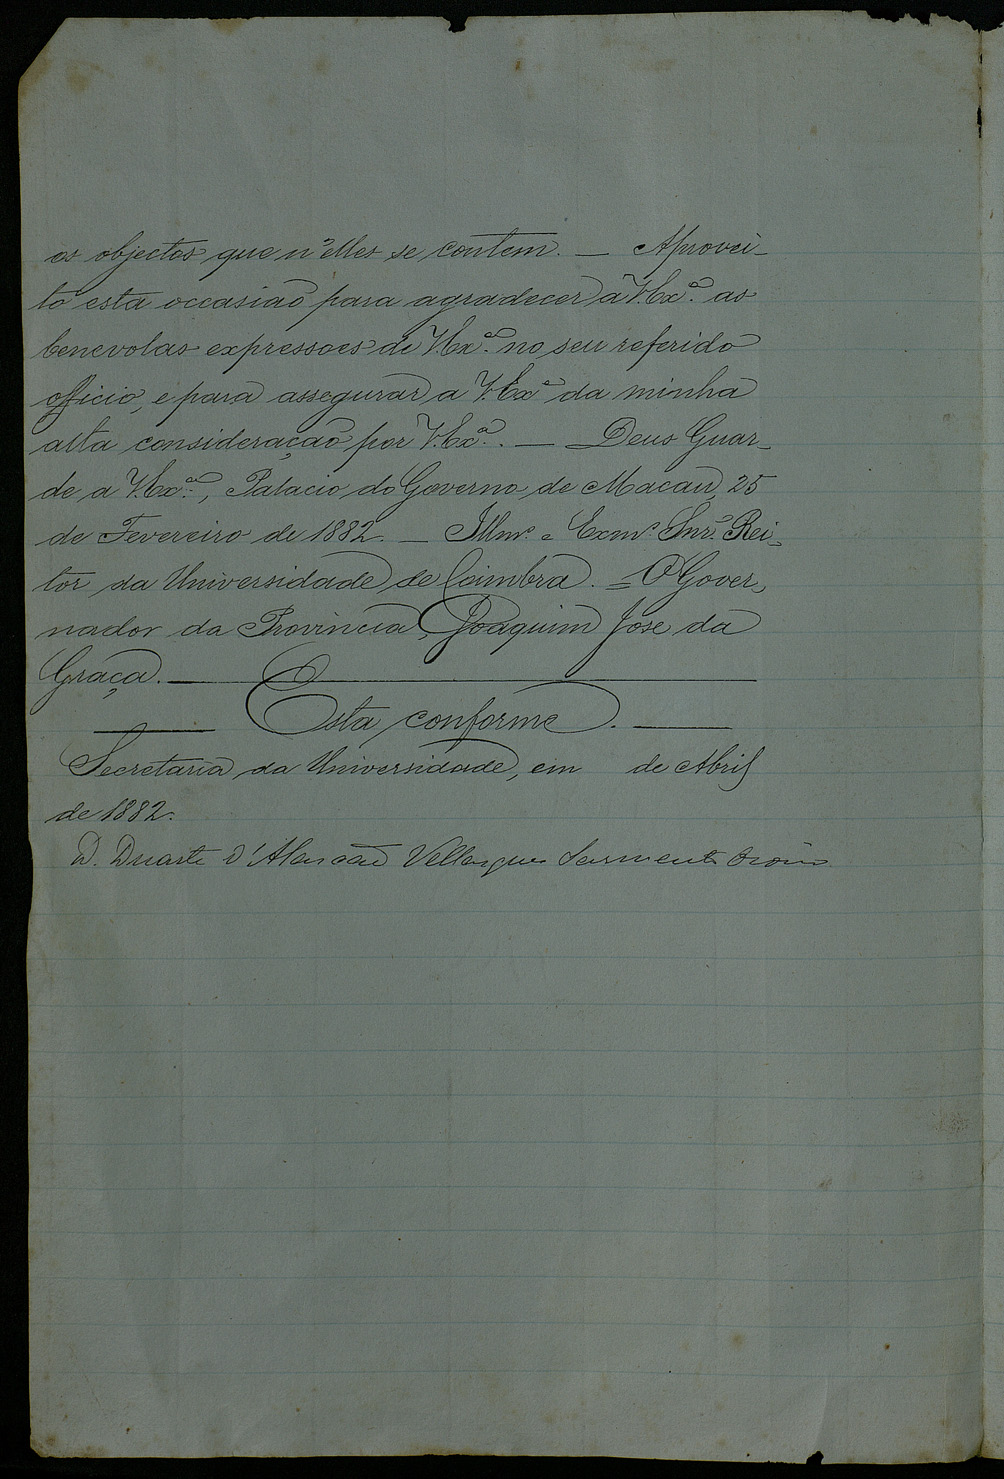 os objectos que n'elles se contem. — Aprovei-
to esta occasião para agradecer a V. Exª. as
benevolas expressoes de V. Exª. no seu referido
officio, e para assegurar a V. Exª da minha
alta consideração por V. Exª. — Deus Guar-
de a V. Exª., Palacio do Governo de Macau, 25
de Fevereiro de 1882. — Illmº. e Exmº. Snr. Rei-
tor da Universidade de Coimbra. = O Gover-
nador da Provincia, Joaquim José da
Graça.
Está conforme.
Secretaria da Universidade, em de Abril
de 1882.
D. Duarte d'Alarcão Vellasques Sarmento